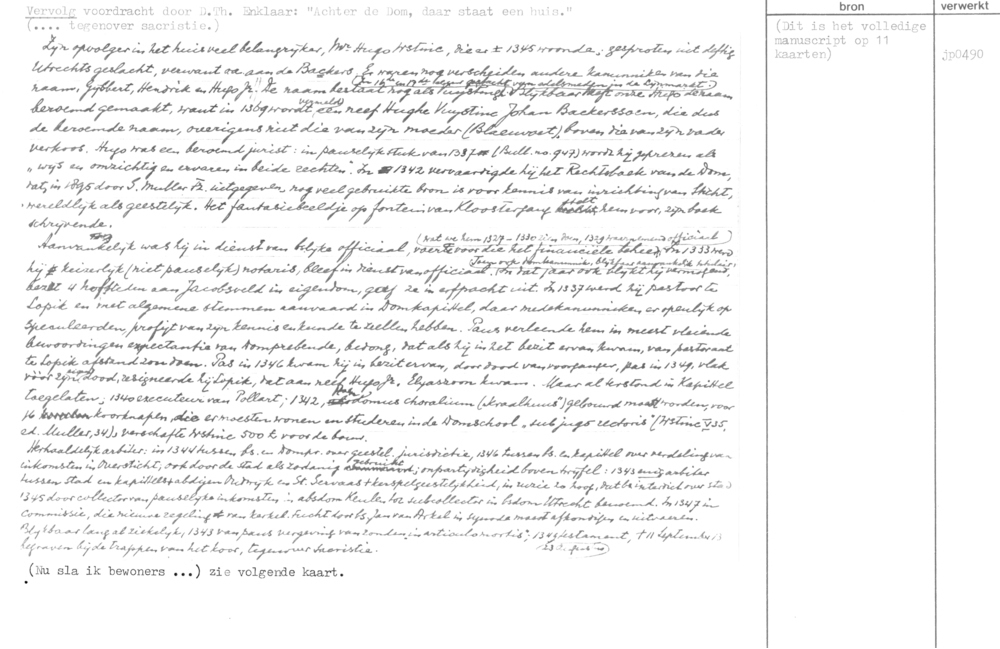 Vervolg voordracht door D.Th. Enklaar: "Achter de Dom, daar staat een huis."
(.... tegenover sacristie.)
bron
verwerkt
(Dit is het volledige
manuscript op 11
kaarten)
jp0490
Zijn opvolger in het huis veel belangrijker, Mr Hugo Wstinc, die er ± 1345 woonde; gesproten uit deftig
Utrechts geslacht, verwant o.a. aan de Backers. Er waren nog verscheiden andere kanunniken van die
naam, Gijsbert, Hendrik en Hugo Jr. De naam bestaat nog als Blijkbaar heeft onze Hugo de naam
beroemd gemaakt, want in 1369 wordt vermeld een neef Hughe Vuystinc Johan Backerssoen, die dus
de beroemde naam, overigens niet die van zijn moeder (Blaeuwoet), boven die van zijn vader
verkoos. Hugo was een beroemd jurist: in pauselijk stuk van 1337 (Bull. no. 947) wordt hij geprezen als
"wijs en omzichtig en ervaren in beide rechten". In 1342 vervaardigde hij het Rechtsboek van de Dom,
dat, in 1895 door S. Muller Fz. uitgegeven, nog veel gebruikte bron is voor kennis van inrichting van Sticht,
wereldlijk als geestelijk. Het fantasiebeeldje op fontein van Kloostergang stelt hem voor, zijn boek
schrijvende.
Aanvankelijk was hij in dienst van bisschoppelijke officiaal, voor die het financiële beheer, In 1333 werd
hij keizerlijk (niet pauselijk) notaris, bleef in dienst van officiaal. In dat jaar ook blijkt hij vermogend,
bezit 4 hofsteden aan Jacobsveld in eigendom, geeft ze in erfpacht uit. In 1337 werd hij pastoor te
Lopik en met algemene stemmen aanvaard in Domkapittel, daar medekanunniken er openlijk op
speculeerden, profijt van zijn kennis en kunde te zullen hebben. Paus verleende hem in meest vleiende
bewoordingen expectantie van Domprebende, bedong, dat als hij in het bezit ervan kwam, van pastoraat
te Lopik afstand zou doen. Pas in 1346 kwam hij in bezit ervan, door dood van voorganger, pas in 1349, vlak
vóór zijn dood, resigneerde hij Lopik, dat aan neef Hugo Jr. Elyaszoon kwam. Maar al terstond in Kapittel
toegelaten; 1340 executeur van Pollart; 1342, toen domus choralium (Kraalhuus) gebouwd moest worden, voor
16 koorknapen, die er moesten wonen en studeren in de Domschool "sub jugo rectoris" (Wstinc
ed. Muller, 34), verschafte Wstinc 500 £ voor de bouw.
Herhaaldelijk arbiter: in 1344 tussen bs. en Dompr. over geestel. jurisdictie, 1346 tussen bs. en kapittel over verdeling van
inkomsten in Oversticht, ook door de stad als zodanig gebruikt; onpartijdigheid boven twijfel: 1343 enig arbiter
tussen stad en kapittels, abdijen Oudwijk en St. Servaas + kerspelgeestelijkheid, in ruzie zo hoog, dat be interdict over stad
1345 door collector van pauselijke inkomsten in absdom Keulen tot subcollector in bsdom Utrecht benoemd. In 1347 in
commissie, die nieuwe regeling van kerkel. tucht door bs. Jan van Arkel in synode moest afkondigen en uitvoeren.
Blijkbaar lang al ziekelijk, 1343 van paus vergeving van zonden in articulo mortis; 1349 testament, † 11 September
begraven bij de trappen van het koor, tegenover Sacristie.
(Nu sla ik bewoners ...) zie volgende kaart.